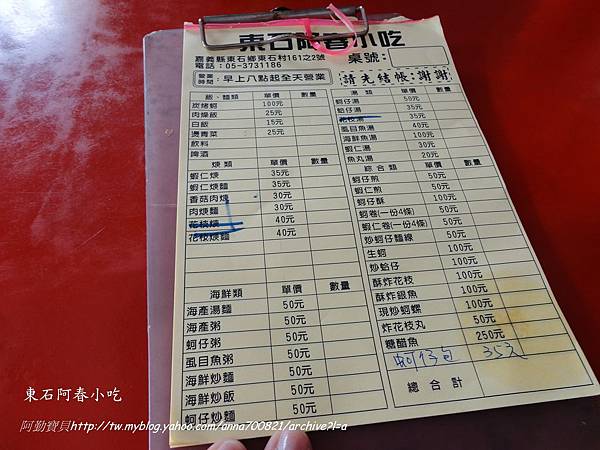 東石阿春小吃
嘉義縣東石鄉東石村161之2號
電話：05-3731186
桌號：
營業時間：早上八點起全天營業
請先結帳：謝謝
飯、麵類 單價 數量
炭烤蚵 100元
肉燥飯 25元
白飯 15元
燙青菜 25元
飲料
啤酒
焿類 單價 數量
蝦仁焿 35元
蝦仁焿麵 35元
香菇肉焿 30元
肉焿麵 30元
花枝焿 40元
花枝焿麵 40元
海鮮類 單價 數量
海產湯麵 50元
海產粥 50元
蚵仔粥 50元
虱目魚粥 50元
海鮮炒麵 50元
海鮮炒飯 50元
蚵仔炒麵 50元
湯類 單價 數量
蚵仔湯 50元
蛤仔湯 35元
花枝湯 35元
虱目魚湯 40元
海鮮魚湯 50元
蝦仁湯 30元
魚丸湯 20元
綜合類 單價 數量
蚵仔煎 50元
蝦仁煎 50元
蚵仔酥 50元
蚵卷(一份4條) 50元
蝦仁卷(一份4條) 50元
炒蚵仔麵線 50元
生蚵 100元
炒蛤仔 100元
酥炸花枝 100元
酥炸銀魚 100元
現炒蚵螺 100元
炸花枝丸 100元
糖醋魚 250元
蚵仔包 35元
總合計
東石阿春小吃
阿勤寶貝http://tw.myblog.yahoo.com/anna700821/archive?l=a